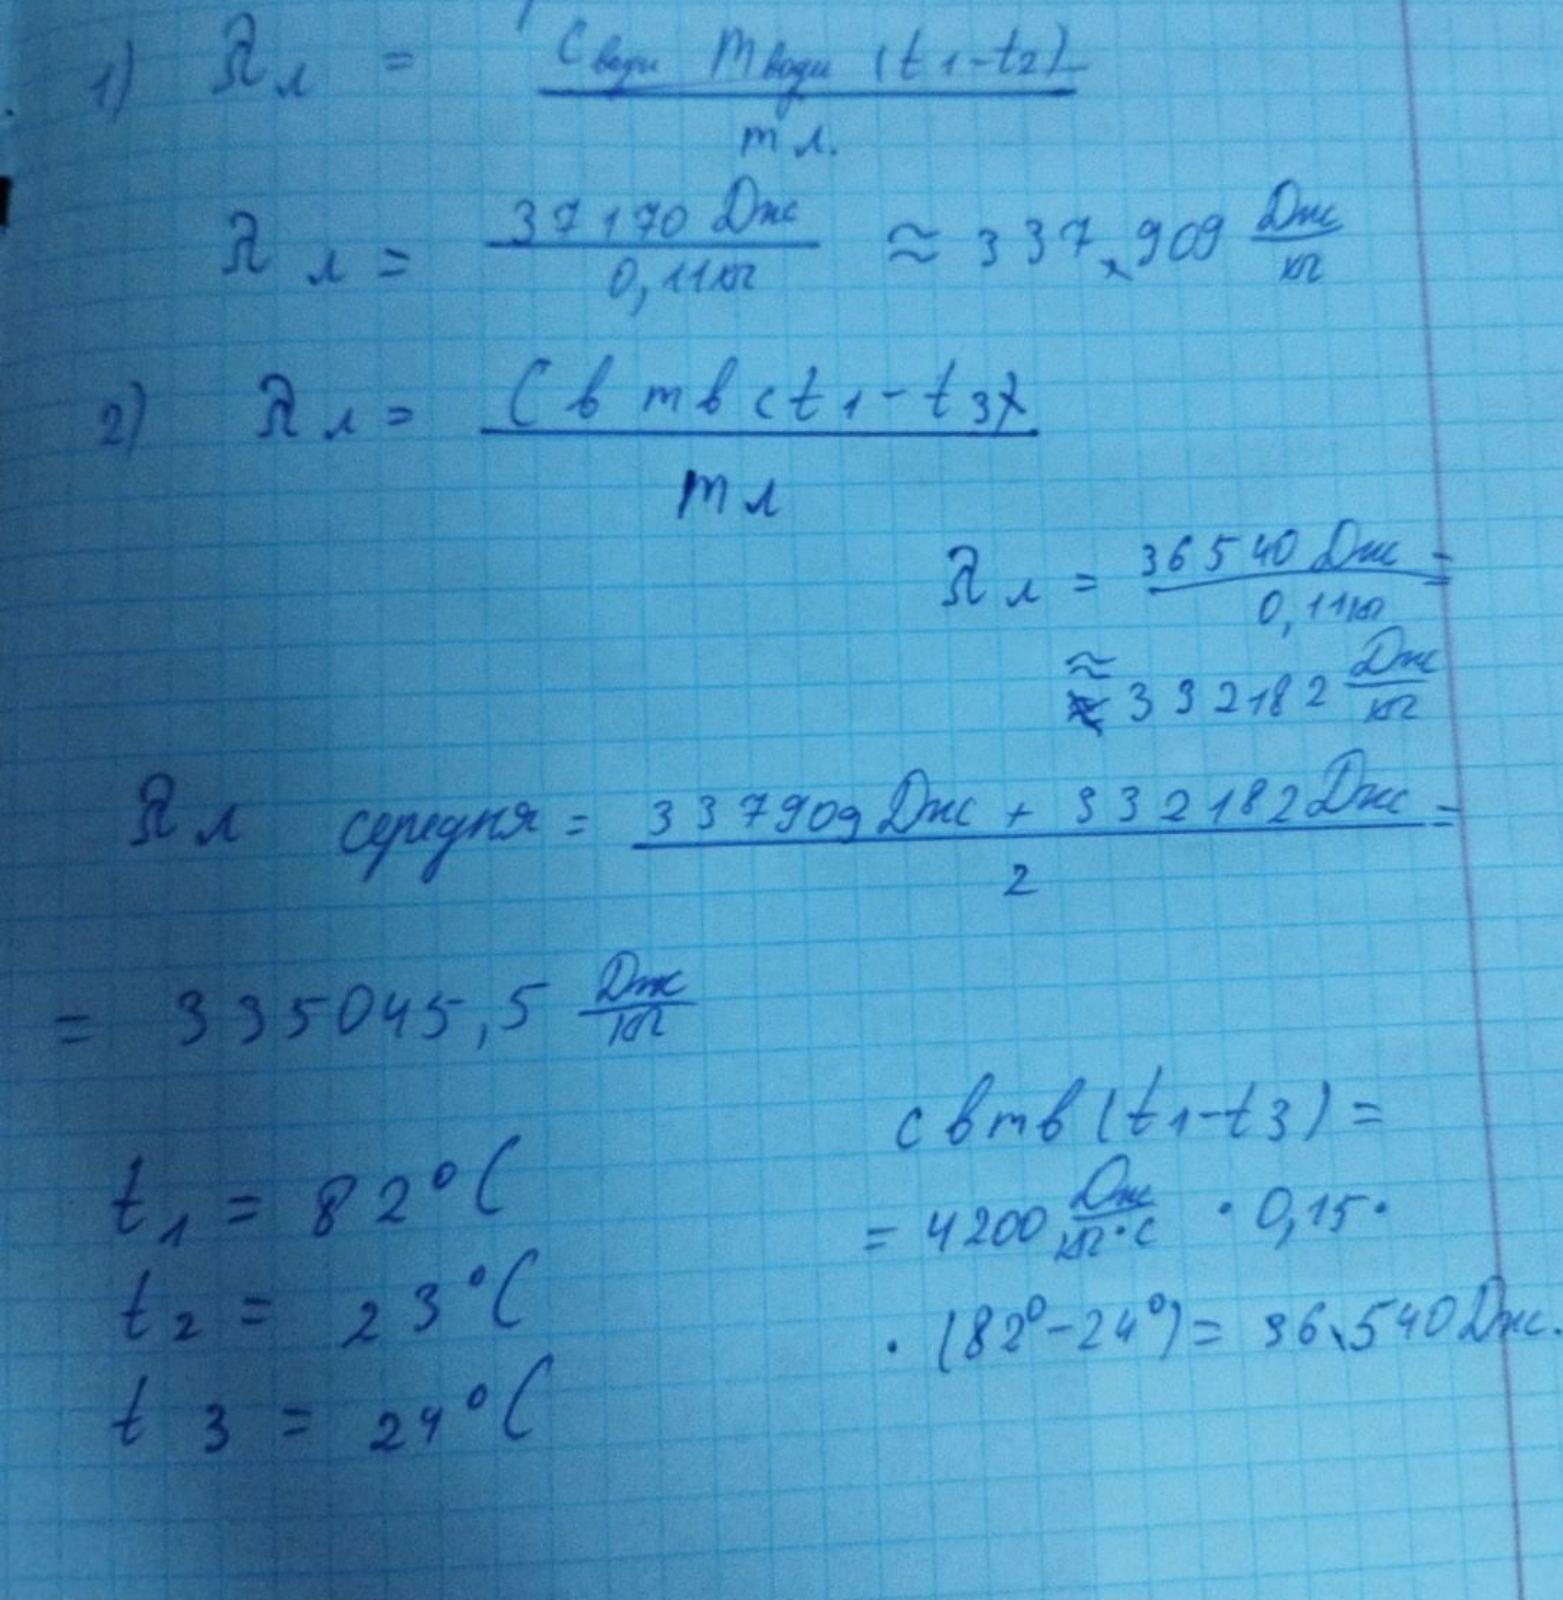 1) λ л = C води m води (t1-t2) / m л.
λ л = 37170 Дж / 0,11кг ≈ 337909 Дж/кг
2) λ л = C в m в (t1-t3) / m л
λ л = 36540 Дж / 0,11кг =
≈ 332182 Дж/кг
λ л середня = 337909 Дж + 332182 Дж / 2 =
= 335045,5 Дж/кг
c в m в (t1-t3) =
t1 = 82°C
= 4200 Дж/кг·C · 0,15·
t2 = 23°C
· (82°-24°) = 36540 Дж.
t3 = 24°C